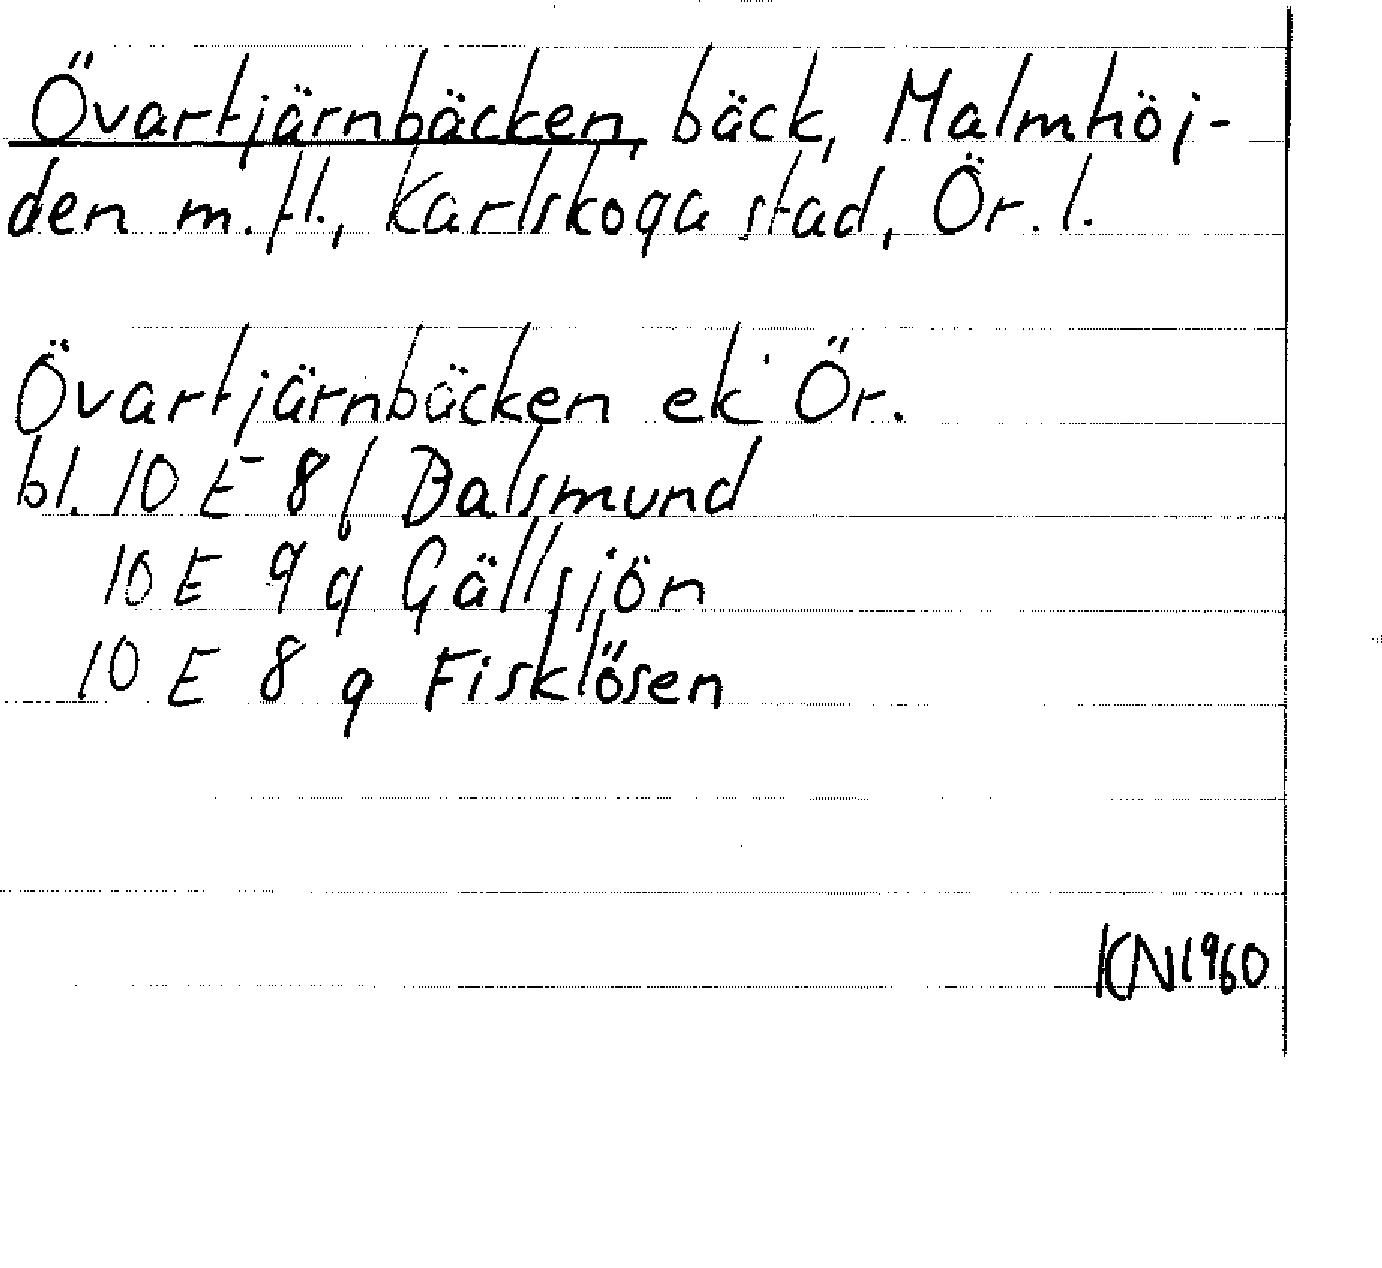 Övartjärnbäcken, bäck, Malmhöj-
den m.fl., Karlskoga stad, Ör. l.
Övartjärnbäcken ek Ör.
bl. 10 E 8 f Dalsmund
10 E 9 g Gällsjön
10 E 8 g Fisklösen
KN 1960